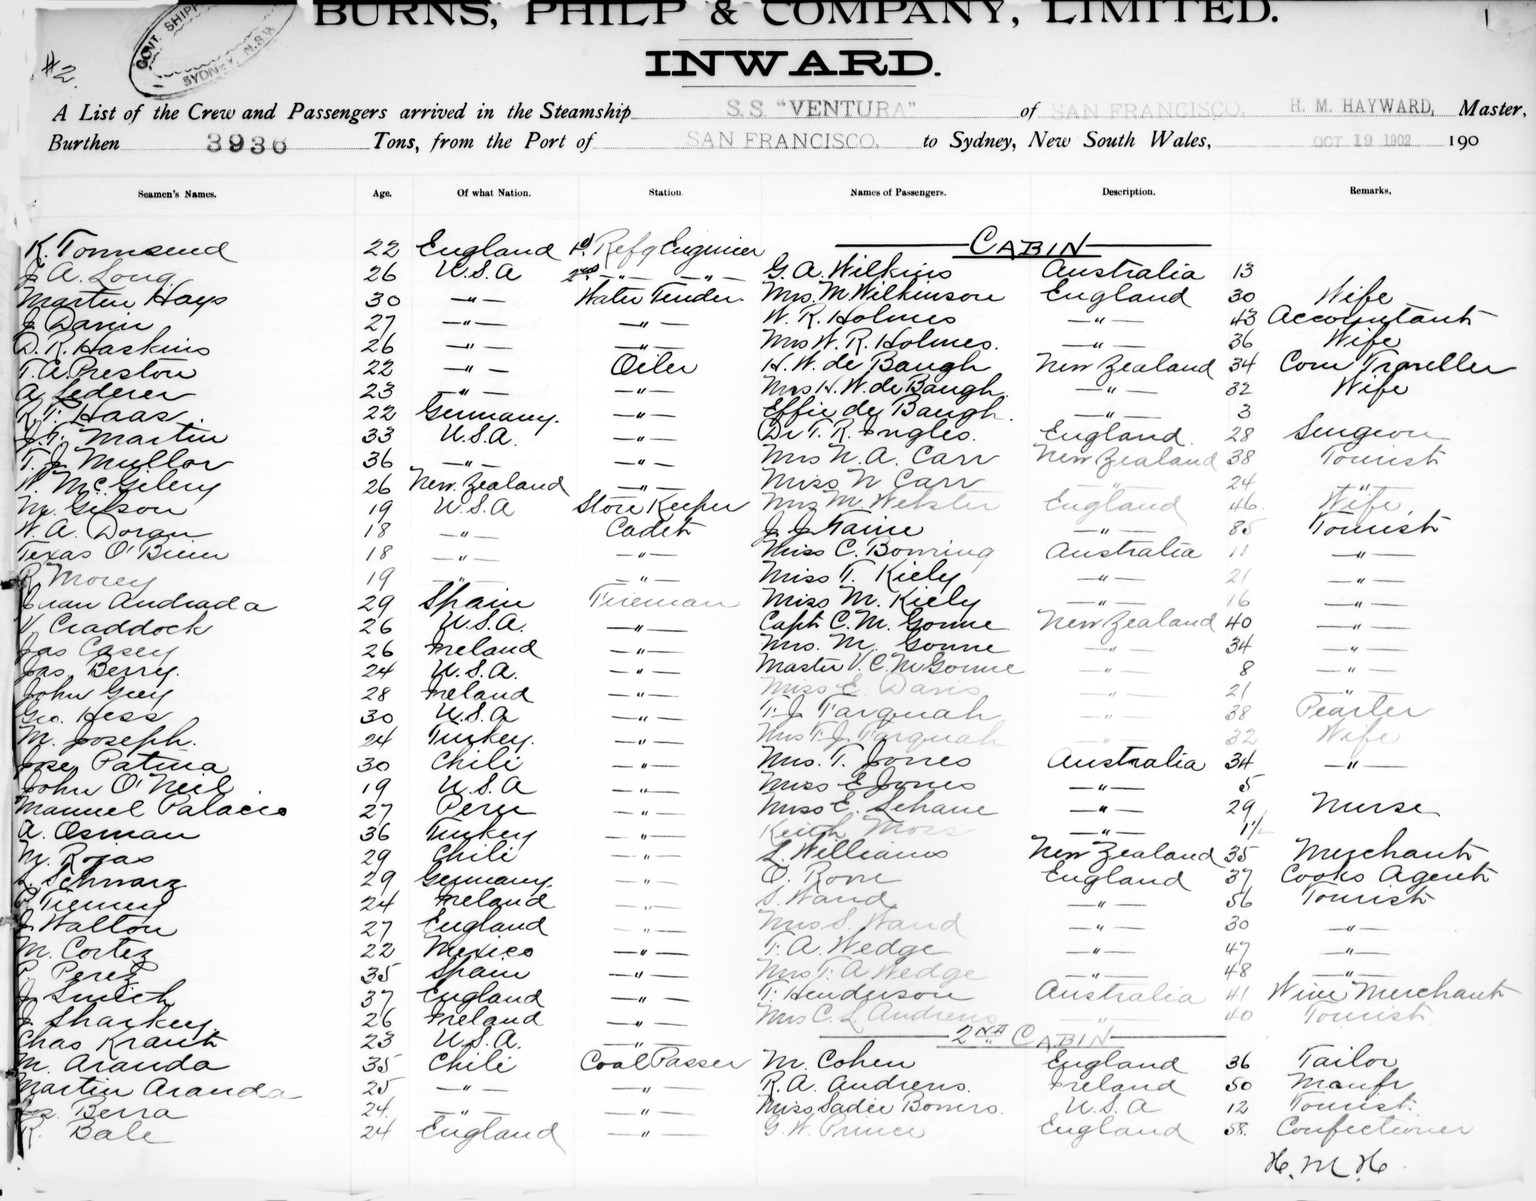 BURNS, PHILP & COMPANY, LIMITED.
INWARD.
GOVT. SHIPP
SYDNEY, N.S.W.
#2.
1
A List of the Crew and Passengers arrived in the Steamship S.S. "VENTURA" of SAN FRANCISCO, H. M. HAYWARD, Master,
Burthen 3936 Tons, from the Port of SAN FRANCISCO, to Sydney, New South Wales, OCT 19 1902 190
Seamen's Names. Age. Of what Nation. Station. Names of Passengers. Description. Remarks.
K. Townsend 22 England 1st Refg Engineer CABIN
J. A. Long 26 U.S.A 2nd -"- -"- G. A. Wilkins Australia 13
Martin Hays 30 -"- Water Tender Mrs. M. Wilkinson England 30 Wife
J. Davin 27 -"- -"- W. R. Holmes -"- 43 Accountant
D. R. Haskins 26 -"- -"- Mrs W. R. Holmes. -"- 36 Wife
T. A. Preston 22 -"- Oiler H. W. de Baugh New Zealand 34 Com Traveller
A. Lederer 23 -"- -"- Mrs H. W. de Baugh -"- 32 Wife
R. F. Haas 22 Germany. -"- Effie de Baugh. -"- 3
J. F. Martin 33 U.S.A. -"- Dr T. R. Ingles. England. 28 Surgeon
T. J. Mullor 36 -"- -"- Mrs N. A. Carr New Zealand 38 Tourist
26 New Zealand -"- Miss N Carr -"- 24 -"-
M. Gelson 19 U.S.A Store Keeper Mrs M. Webster England 46. Wife
W. A. Doran 18 -"- Cadet J. J. -"- 85 Tourist
Texas O'Brien 18 -"- -"- Miss C. Bowring Australia 11 -"-
R Morey 19 -"- -"- Miss T. Kiely -"- 21 -"-
Juan Andrada 29 Spain Fireman Miss M. Kiely -"- 16 -"-
V. Craddock 26 U.S.A. -"- Capt. C. M. Gonne New Zealand 40 -"-
Jas Casey 26 Ireland -"- Mrs. M. Gonne -"- 34 -"-
Jas. Berry. 24 U.S.A. -"- Master V. C. M Gonne -"- 8 -"-
John Grey 28 Ireland -"- Miss E. Davis -"- 21 -"-
Geo. Hess 30 U.S.A -"- T. J. Farquah -"- 38
M. Joseph. 24 Turkey. -"- Mrs T. J. Farquah -"- 32 Wife
Jose Patina 30 Chili -"- Mrs. T. Jones Australia 34 -"-
John O'Neil 19 U.S.A -"- Miss E Jones -"- 5
Manuel Palacio 27 Peru -"- Miss E. Lehane -"- 29 Nurse
A. Osman 36 Turkey -"- Keith Moss -"- 1½
M. Rojas 29 Chili -"- L. Williams New Zealand 35 Merchant
L. Schwarz 29 Germany. -"- O. Rowe England 37 Cooks Agent
P. Tierney 24 Ireland -"- S. Wand -"- 56 Tourist
J. Walton 27 England -"- Mrs S. Wand -"- 30 -"-
M. Cortez 22 Mexico -"- T. A. Wedge -"- 47 -"-
P. Perez 35 Spain -"- Mrs T. A Wedge -"- 48 -"-
J. Smith 37 England -"- T. Henderson Australia 41 Wine Merchant
J. Sharkey. 26 Ireland -"- Mrs C. L. Andrews -"- 40 Tourist
Chas Krant 23 U.S.A. -"- 2ND CABIN
M. Aranda 35 Chili Coal Passer M. Cohen England 36 Tailor
Martin Aranda 25 -"- -"- R. A. Andrews. Ireland 50 Manfr
Berra 24 -"- -"- Miss Sadie Bowers. U.S.A 12 Tourist.
R. Bale 24 England -"- G. W. Prince England 58. Confectioner
H. M. H.